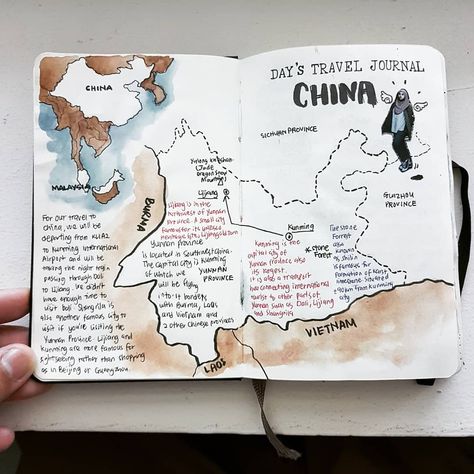 CHINA
MALAYSIA
For our travel to
China, we will be
departing from KLIA2
to Kunming International
Airport and will be
taking the night train
passing through Dali
to Lijiang. We didn't
have enough time to
visit Dali. Shangrila is
also another famous city to
visit if you're visiting the
Yunnan Province. Lijiang and
Kunming are more famous for
sightseeing rather than shopping
as in Beijing or Guangzhou.
BURMA
Mountain
Lijiang
Lijiang is in the
Northwest of Yunnan
Province. A small city
famous for its
Yunnan Province
is located in Southwest China.
The capital city is Kunming
of which we
will be
flying
into. It borders
with Burma, Laos
and Vietnam and
2 other Chinese provinces
YUNNAN
PROVINCE
LAOS
DAY'S TRAVEL JOURNAL
CHINA
SICHUAN PROVINCE
GUIZHOU
PROVINCE
Kunming
Kunming is the
capital city of
Yunnan Province also
its largest.
It is also a transport
hub connecting international
tourist to other parts of
Yunnan such as Dali, Lijiang
and Shangrila
Stone
Forest
The Stone
Forest
also
known
as Shilin
is famous for
formations of
situated
from Kunming
city
VIETNAM